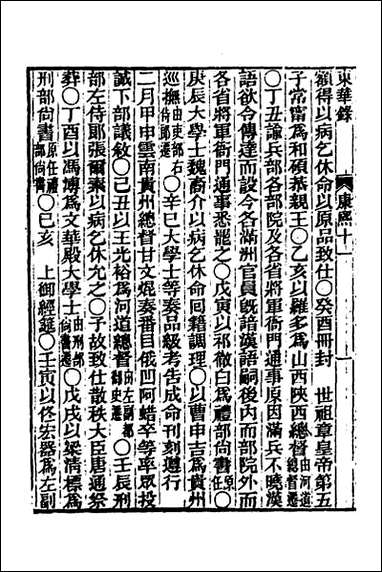 東華錄 康熙十一 一
額得以病乞休命以原品致仕〇癸酉冊封 世祖章皇帝第五
子常寗為和碩恭親王〇乙亥以羅多為山西陝西總督由河道總督遷
〇丁丑諭兵部各部院及各省將軍衙門通事原因滿兵不曉漢
語欲令傳達而設今各滿洲官員旣諳漢語嗣後內而部院外而
各省將軍衙門通事悉罷之〇戊寅以祁徹白為禮部尚書原任〇
庚辰大學士魏裔介以病乞休命回籍調理〇以曹申吉為貴州
巡撫由吏部右侍郎遷〇辛巳大學士等奏品級考告成命刊刻遵行
二月甲申雲南貴州總督甘文焜奏番目俄凹阿蜡卒等率眾投
誠下部議敘〇己丑以王光裕為河道總督由左副都御史遷〇壬辰刑
部左侍郎張爾素以病乞休允之〇予故致仕散秩大臣唐通祭
葬〇丁酉以馮溥為文華殿大學士由刑部尚書遷〇戊戌以梁清標為
刑部尚書原任禮部尚書〇己亥 上御經筵〇壬寅以佟宏器為左副